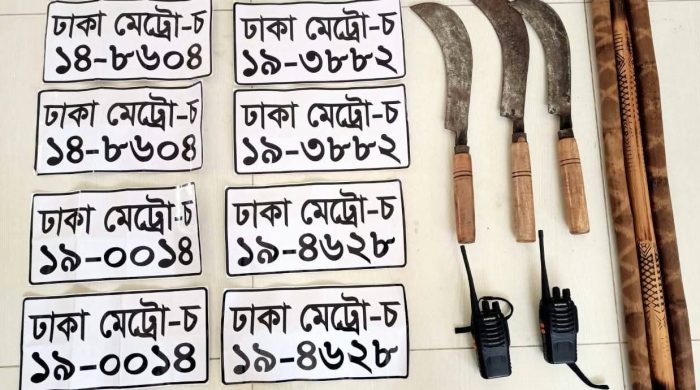 ঢাকা মেট্রো-চ
১৪-৮৬০৪
ঢাকা মেট্রো-চ
১৯-৩৮৮২
ঢাকা মেট্রো-চ
১৪-৮৬০৪
ঢাকা মেট্রো-চ
১৯-৩৮৮২
ঢাকা মেট্রো-চ
১৯-০০১৪
ঢাকা মেট্রো-চ
১৯-৪৬২৮
ঢাকা মেট্রো-চ
১৯-০০১৪
ঢাকা মেট্রো-চ
১৯-৪৬২৮